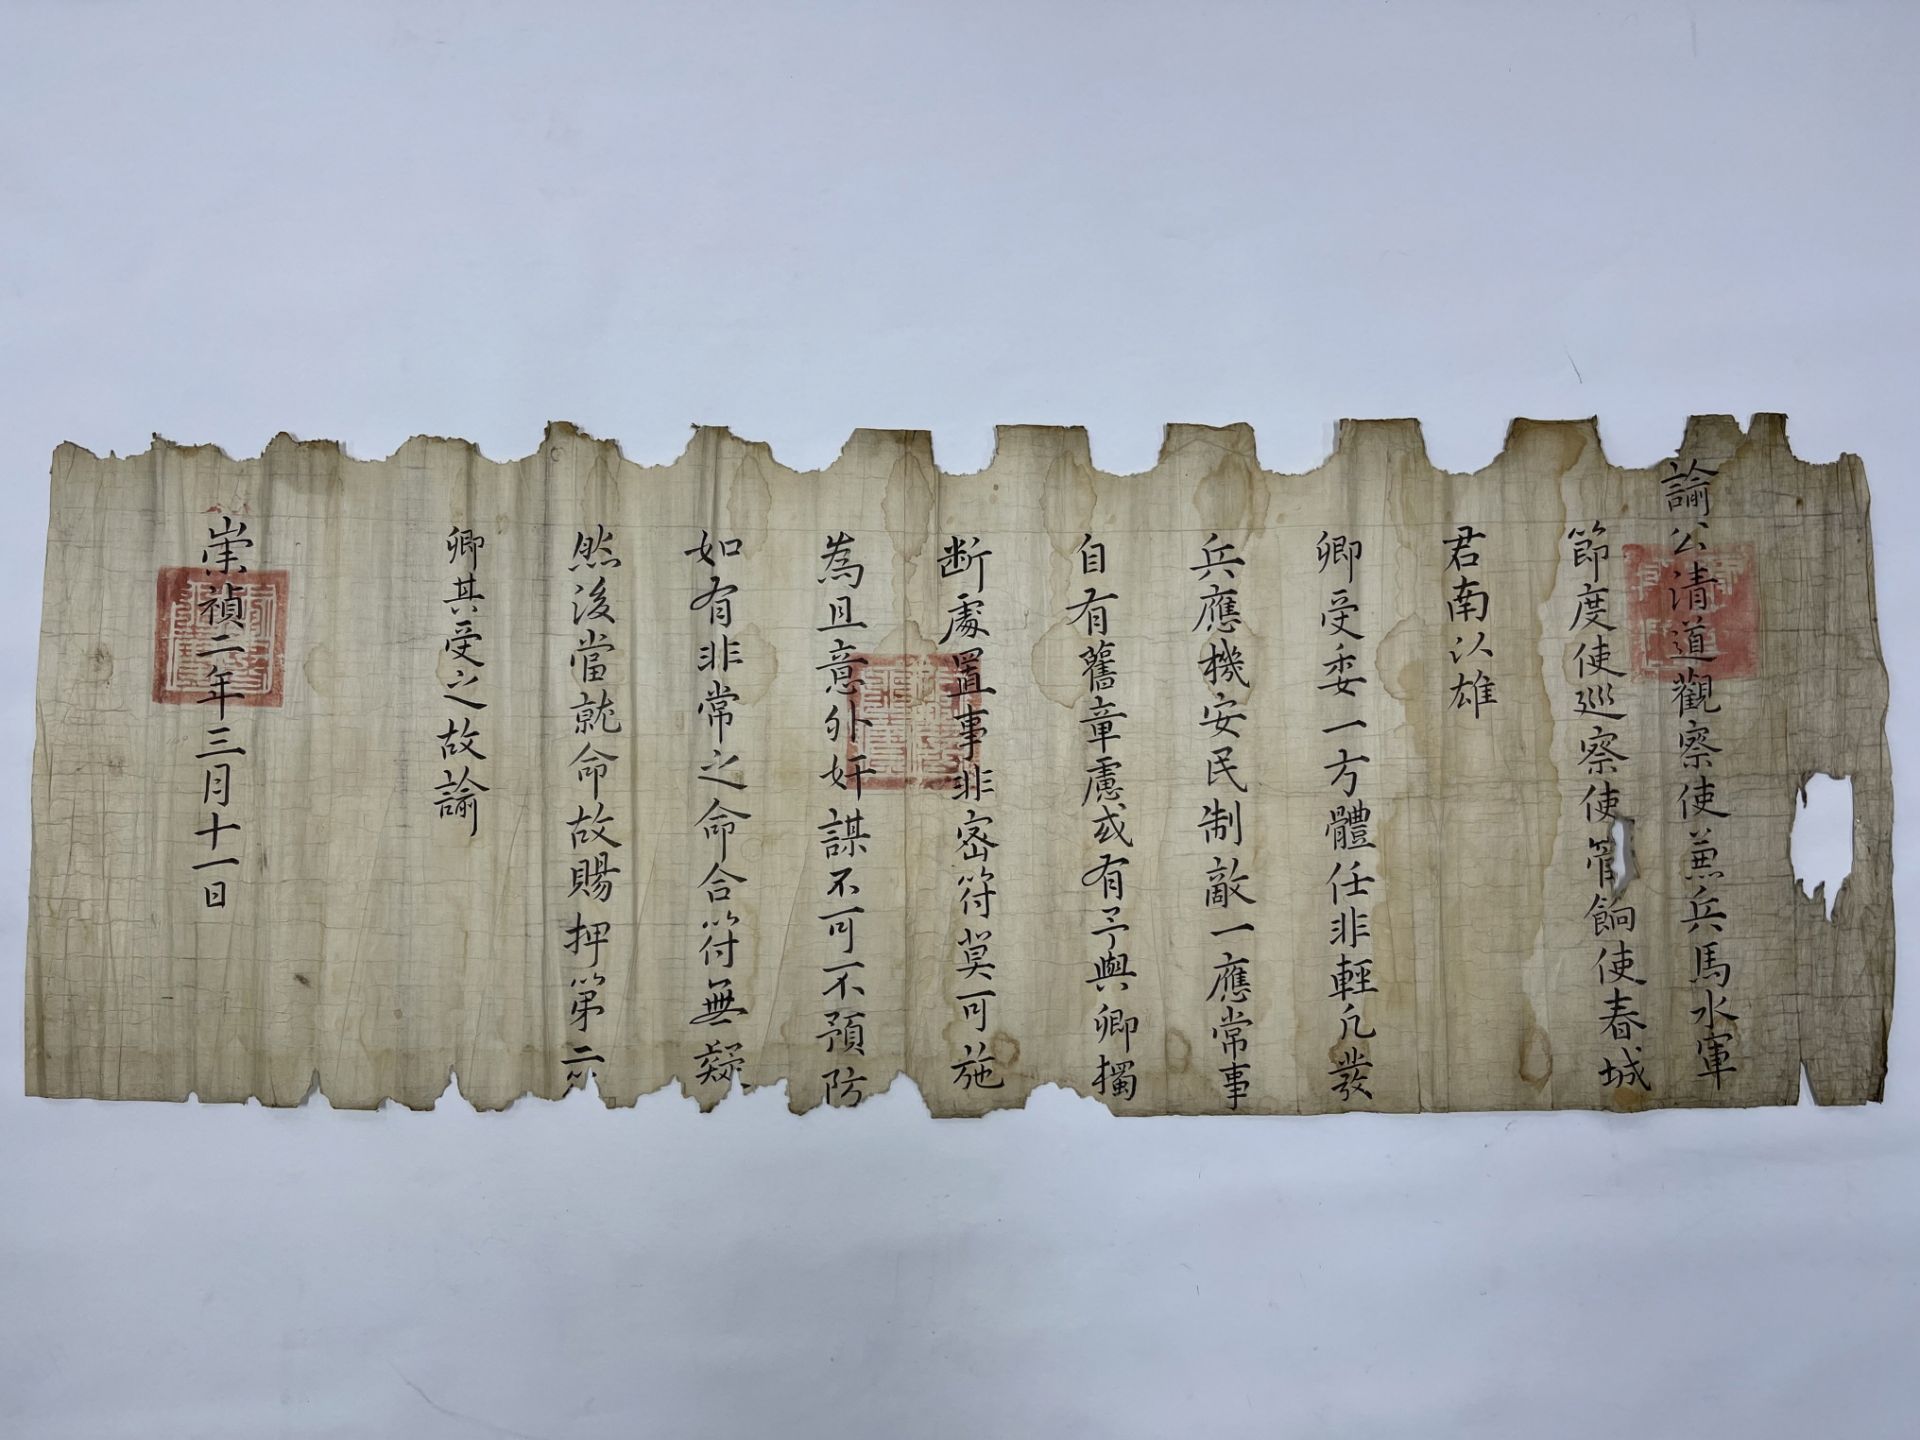 諭公清道觀察使兼兵馬水軍
節度使巡察使管餉使春城
君南以雄
卿受委一方體任非輕凡發
兵應機安民制敵一應常事
自有舊章慮或有予與卿獨
断處置事非密符莫可施
為且意外奸謀不可不預防
如有非常之命合符無疑
然後當就命故賜押第
卿其受之故諭
崇禎二年三月十一日